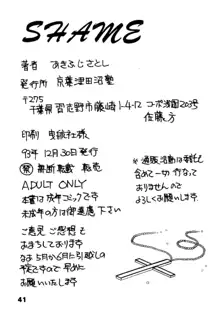 SHAME
著者 あきふじさとし
発行所 京葉津田沼塾
〒275
千葉県習志野市藤崎1-4-12 コーポ清園203号
佐藤方
印刷 曳航社様
93年12月30日発行
禁 無断転載 転売
ADULT ONLY
本書は成年コミックです
未成年の方は御遠慮下さい
ご意見 ご感想を
おまちしております
なお5月か6月に引越しの
予定ですので早めに
お願いいたします
※通販活動は委託も
含めて一切行なって
おりませんので
よろしくお願いします
41